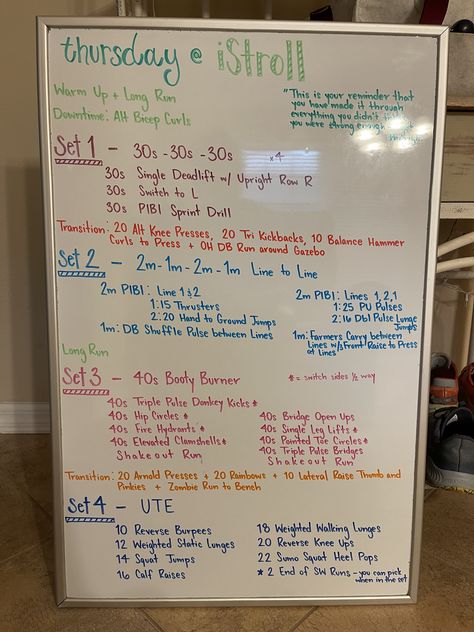 thursday @ iStroll
Warm Up + Long Run
Downtime: Alt Bicep Curls
"This is your reminder that
you have made it through
everything you didn't think
you were strong enough
Set 1 - 30s -30s -30s x4
30s Single Deadlift w/ Upright Row R
30s Switch to L
30s PIBI Sprint Drill
Transition: 20 Alt Knee Presses, 20 Tri Kickbacks, 10 Balance Hammer
Curls to Press + OH DB Run around Gazebo
Set 2 - 2m-1m-2m-1m Line to Line
2m PIBI: Line 1&2
1:15 Thrusters
2:20 Hand to Ground Jumps
1m: DB Shuffle Pulse between Lines
2m PIBI: Lines 1,2,1
1:25 PU Pulses
2:16 Dbl Pulse Lunge
Jumps
1m: Farmers Carry between
Lines w/3 Front Raise to Press
at Lines
Long Run
Set 3 - 40s Booty Burner
* = switch sides 1/2 way
40s Triple Pulse Donkey Kicks *
40s Hip Circles *
40s Fire Hydrants *
40s Elevated Clamshells *
Shakeout Run
40s Bridge Open Ups
40s Single Leg Lifts *
40s Pointed Toe Circles *
40s Triple Pulse Bridges
Shakeout Run
Transition: 20 Arnold Presses + 20 Rainbows + 10 Lateral Raise Thumb and
Pinkies + Zombie Run to Bench
Set 4 - UTE
10 Reverse Burpees
12 Weighted Static Lunges
14 Squat Jumps
16 Calf Raises
18 Weighted Walking Lunges
20 Reverse Knee Ups
22 Sumo Squat Heel Pops
* 2 End of SW Runs - you can pick
when in the set